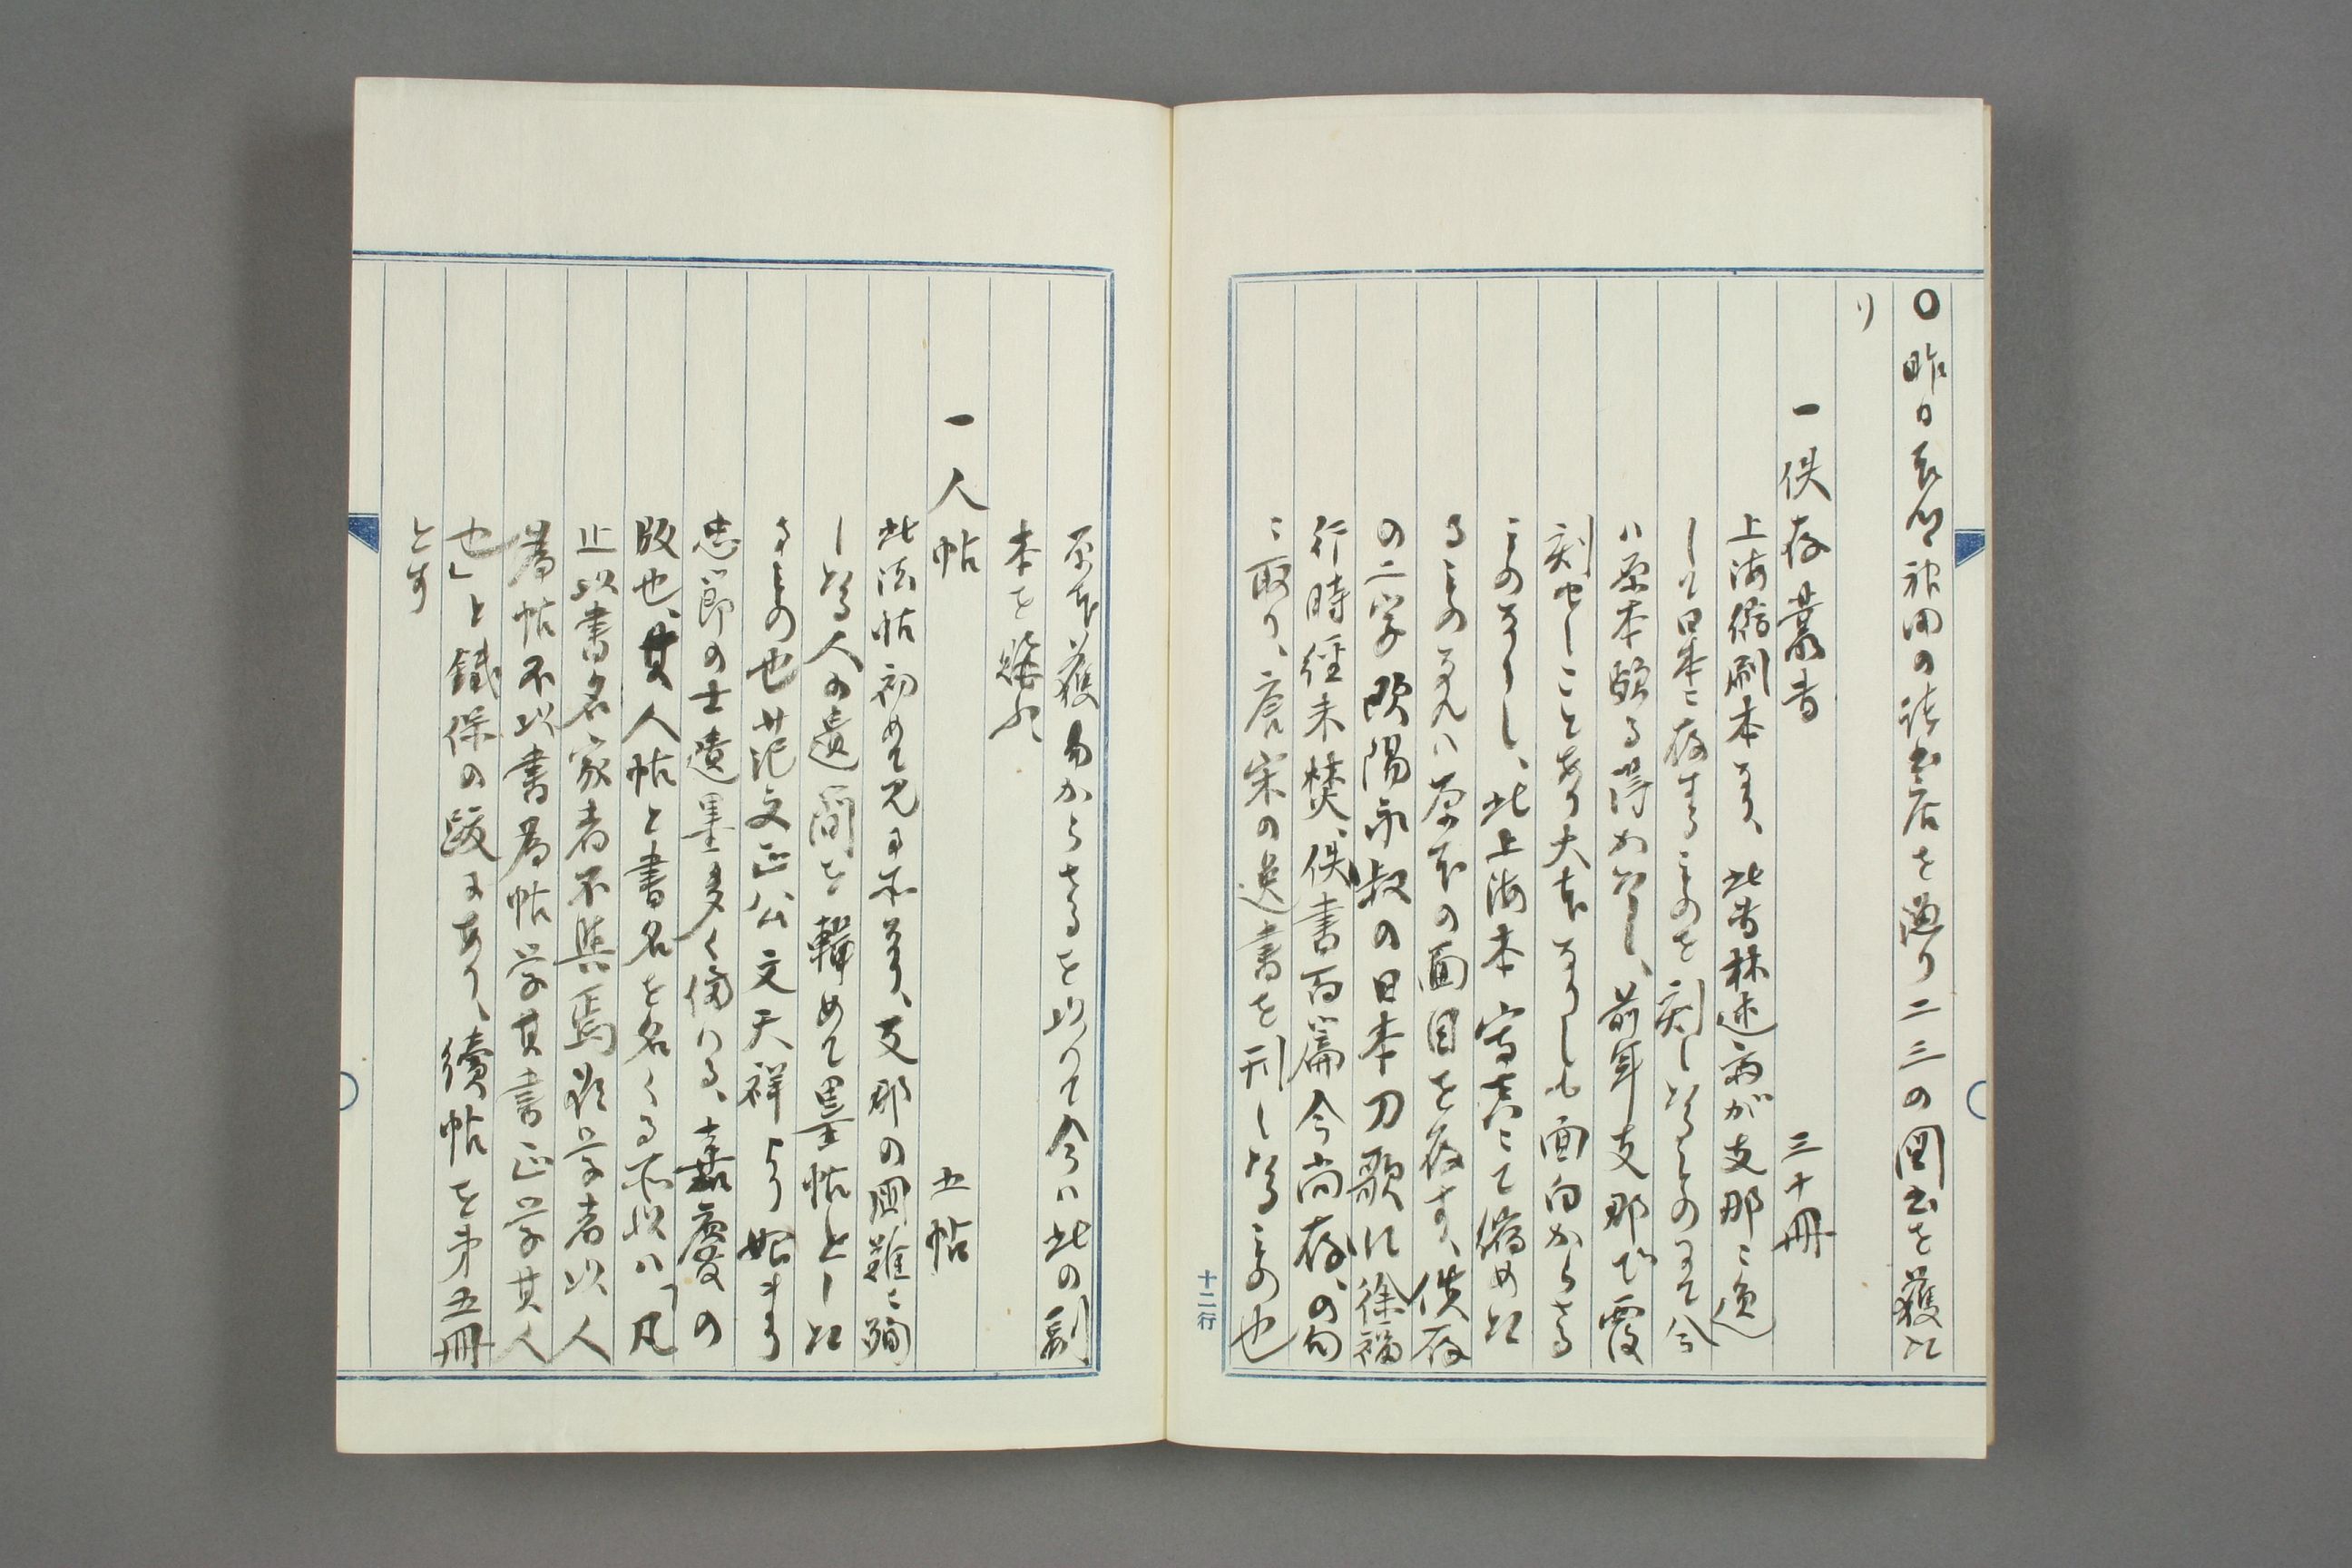 〇昨日表久神田の諸書店を漁り二三の図書を獲た
り
一佚存叢書 三十冊
上海縮刷本なり、此書林述斎が支那に逸
して日本に存するものを刻したるものにて今
ハ原本頗る得かたし、前年支那で覆
刻せしことあり大本なりしも面白からさる
ものなりし、此上海本写真にて縮めた
るものなれハ原本の面目を存す、佚存
の二字欧陽永叔の日本刀歌に徐福
行時経未焚、佚書百篇今尚存、の句
に取り、唐宋の逸書を刊したるもの也
原本獲易からさるを以つて今ハ此の副
本を購ふ
一人帖 五帖
此法帖初めて見る本なり、支那の国難に殉
したる人の遺簡を輯めて墨帖とした
るもの也 范文正公文天祥より始まり
忠節の士遺墨多く備ハる、嘉慶の
版也、其人帖と書名を名くる所以ハ「凡
止以書名家者不与焉欲学者以人
為帖不以書為帖学其書正学其人
也」と鉄保の跋にあり、続帖を第五冊
とす
十二行